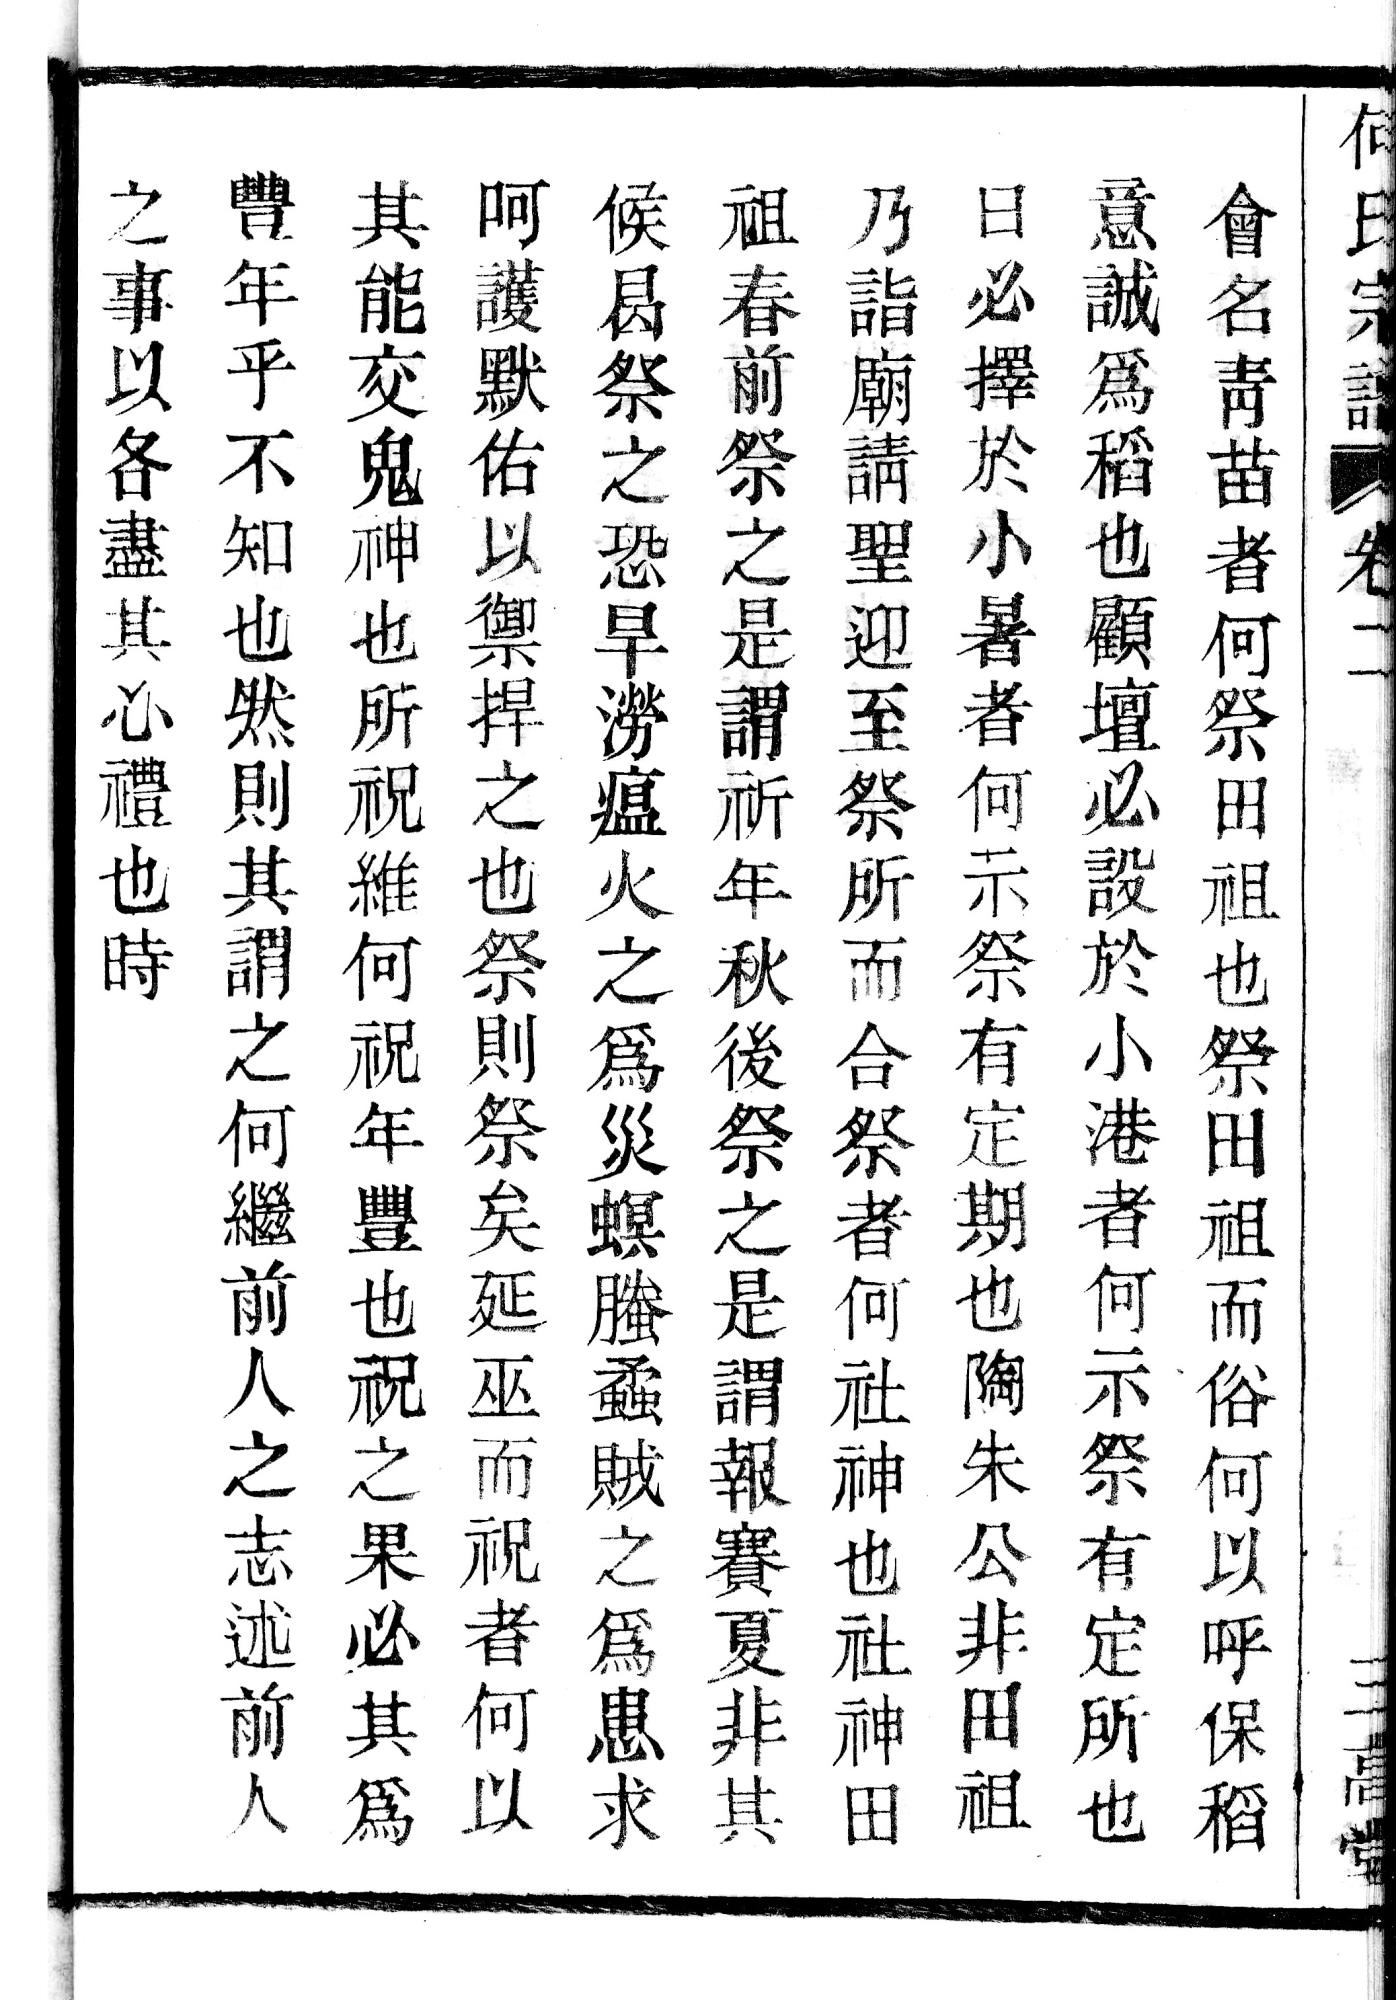 何氏宗譜 卷二 三高堂
會名靑苗者何祭田祖也祭田祖而俗何以呼保稻
意誠爲稻也顧壇必設於小港者何示祭有定所也
日必擇於小暑者何示祭有定期也陶朱公非田祖
乃詣廟請聖迎至祭所而合祭者何社神也社神田
祖春前祭之是謂祈年秋後祭之是謂報賽夏非其
候曷祭之恐旱澇瘟火之爲災螟螣蟊賊之爲患求
呵護默佑以禦捍之也祭則祭矣延巫而祝者何以
其能交鬼神也所祝維何祝年豐也祝之果必其爲
豐年乎不知也然則其謂之何繼前人之志述前人
之事以各盡其心禮也時